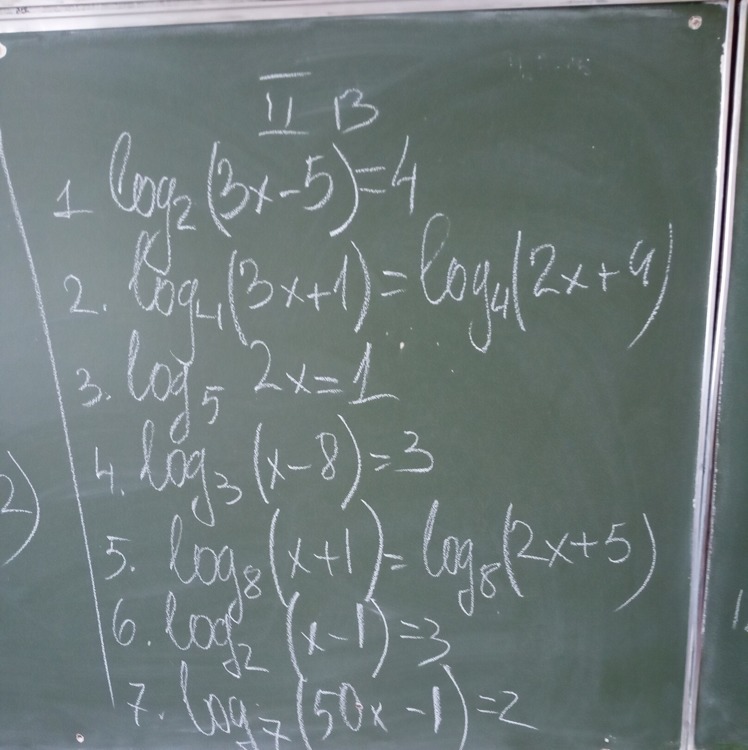 II B
1 log₂(3x-5)=4
2. log₄(3x+1)=log₄(2x+9)
3. log₅ 2x=1
4. log₃(x-8)=3
5. log₈(x+1)=log₈(2x+5)
6. log₂(x-1)=3
7. log₇(50x-1)=2
2)